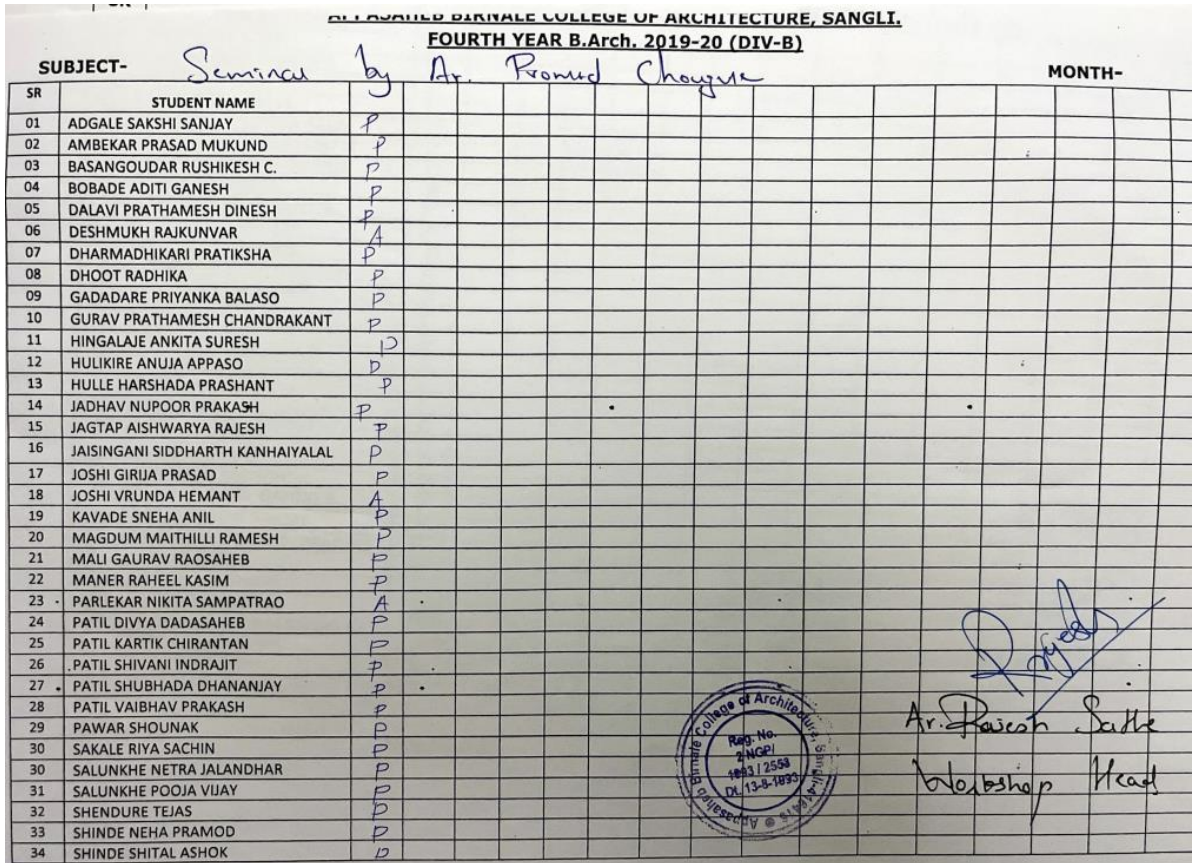 APPASAHEB BIRNALE COLLEGE OF ARCHITECTURE, SANGLI.
FOURTH YEAR B.Arch. 2019-20 (DIV-B)
SUBJECT- Seminar by Ar. Pramod Chougule MONTH-
SR STUDENT NAME
01 ADGALE SAKSHI SANJAY P
02 AMBEKAR PRASAD MUKUND P
03 BASANGOUDAR RUSHIKESH C. P
04 BOBADE ADITI GANESH P
05 DALAVI PRATHAMESH DINESH P
06 DESHMUKH RAJKUNVAR A
07 DHARMADHIKARI PRATIKSHA P
08 DHOOT RADHIKA P
09 GADADARE PRIYANKA BALASO P
10 GURAV PRATHAMESH CHANDRAKANT P
11 HINGALAJE ANKITA SURESH P
12 HULIKIRE ANUJA APPASO P
13 HULLE HARSHADA PRASHANT P
14 JADHAV NUPOOR PRAKASH P
15 JAGTAP AISHWARYA RAJESH P
16 JAISINGANI SIDDHARTH KANHAIYALAL P
17 JOSHI GIRIJA PRASAD P
18 JOSHI VRUNDA HEMANT A
19 KAVADE SNEHA ANIL P
20 MAGDUM MAITHILLI RAMESH P
21 MALI GAURAV RAOSAHEB P
22 MANER RAHEEL KASIM P
23 PARLEKAR NIKITA SAMPATRAO A
24 PATIL DIVYA DADASAHEB P
25 PATIL KARTIK CHIRANTAN P
26 PATIL SHIVANI INDRAJIT P
27 PATIL SHUBHADA DHANANJAY P
28 PATIL VAIBHAV PRAKASH P
29 PAWAR SHOUNAK P
30 SAKALE RIYA SACHIN P
30 SALUNKHE NETRA JALANDHAR P
31 SALUNKHE POOJA VIJAY P
32 SHENDURE TEJAS P
33 SHINDE NEHA PRAMOD P
34 SHINDE SHITAL ASHOK P
Rajesh
Ar. Rajesh Sathe
Workshop Head
Appasaheb Birnale College of Architecture, Sangli-416416
Reg. No.
2 NGP/
1893 / 2553
Dt. 13-8-1893